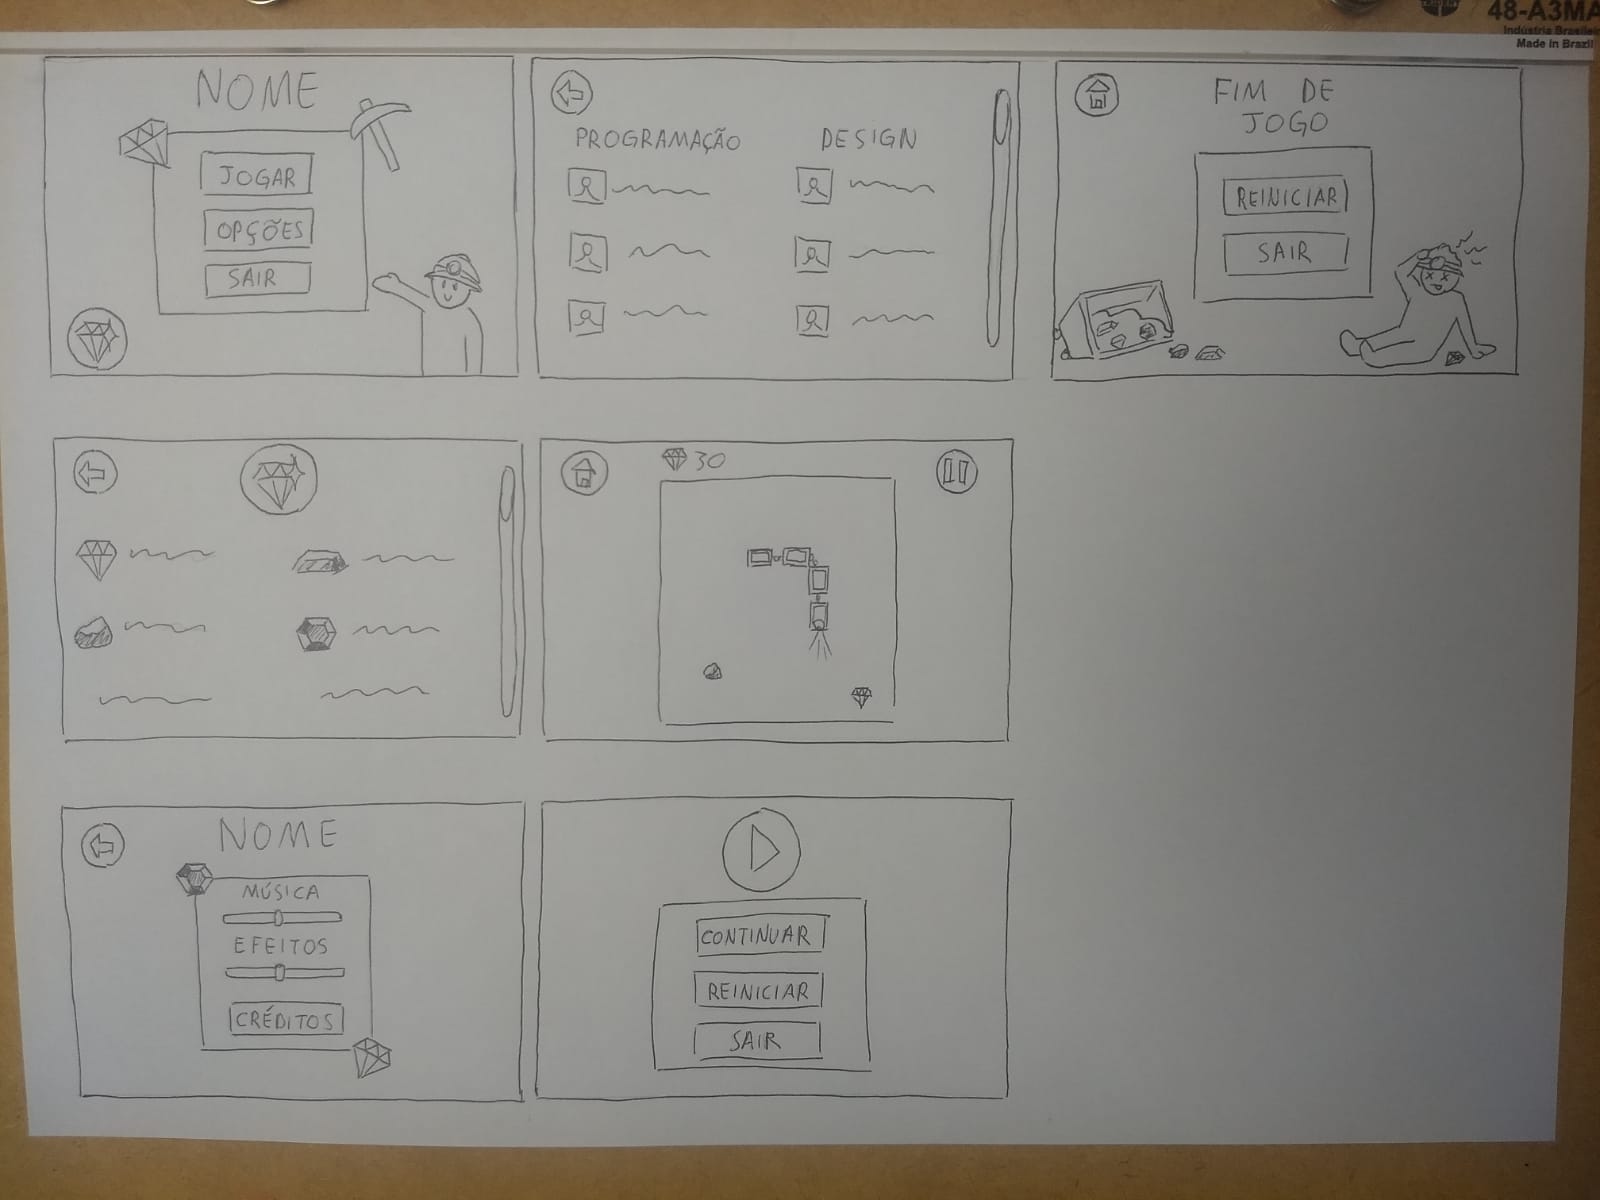 48-A3MA
Indústria Brasilei
Made in Brazil
NOME
JOGAR
OPÇÕES
SAIR
PROGRAMAÇÃO
DESIGN
FIM DE
JOGO
REINICIAR
SAIR
30
NOME
MÚSICA
EFEITOS
CRÉDITOS
CONTINUAR
REINICIAR
SAIR